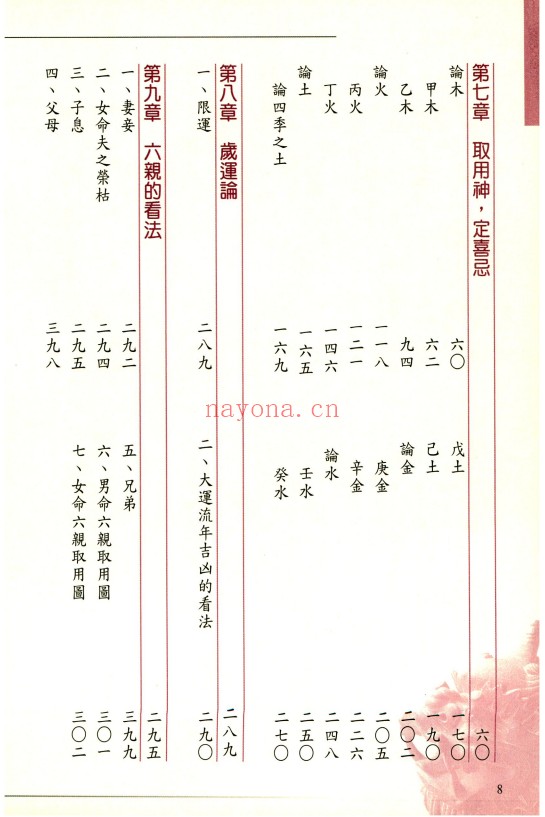 第七章 取用神，定喜忌 六〇
論木 六〇
甲木 六二
乙木 九四
論火 一一八
丙火 一二一
丁火 一四六
論土 一六五
論四季之土 一六九
戊土 一七〇
己土 一九〇
論金 二〇二
庚金 二〇五
辛金 二二六
論水 二四八
壬水 二五〇
癸水 二七〇
第八章 歲運論 二八九
一、限運 二八九
二、大運流年吉凶的看法 二九〇
第九章 六親的看法 二九五
一、妻妾 二九二
二、女命夫之榮枯 二九四
三、子息 二九五
四、父母 三九八
五、兄弟 三九九
六、男命六親取用圖 三〇一
七、女命六親取用圖 三〇二
nayona.cn
8